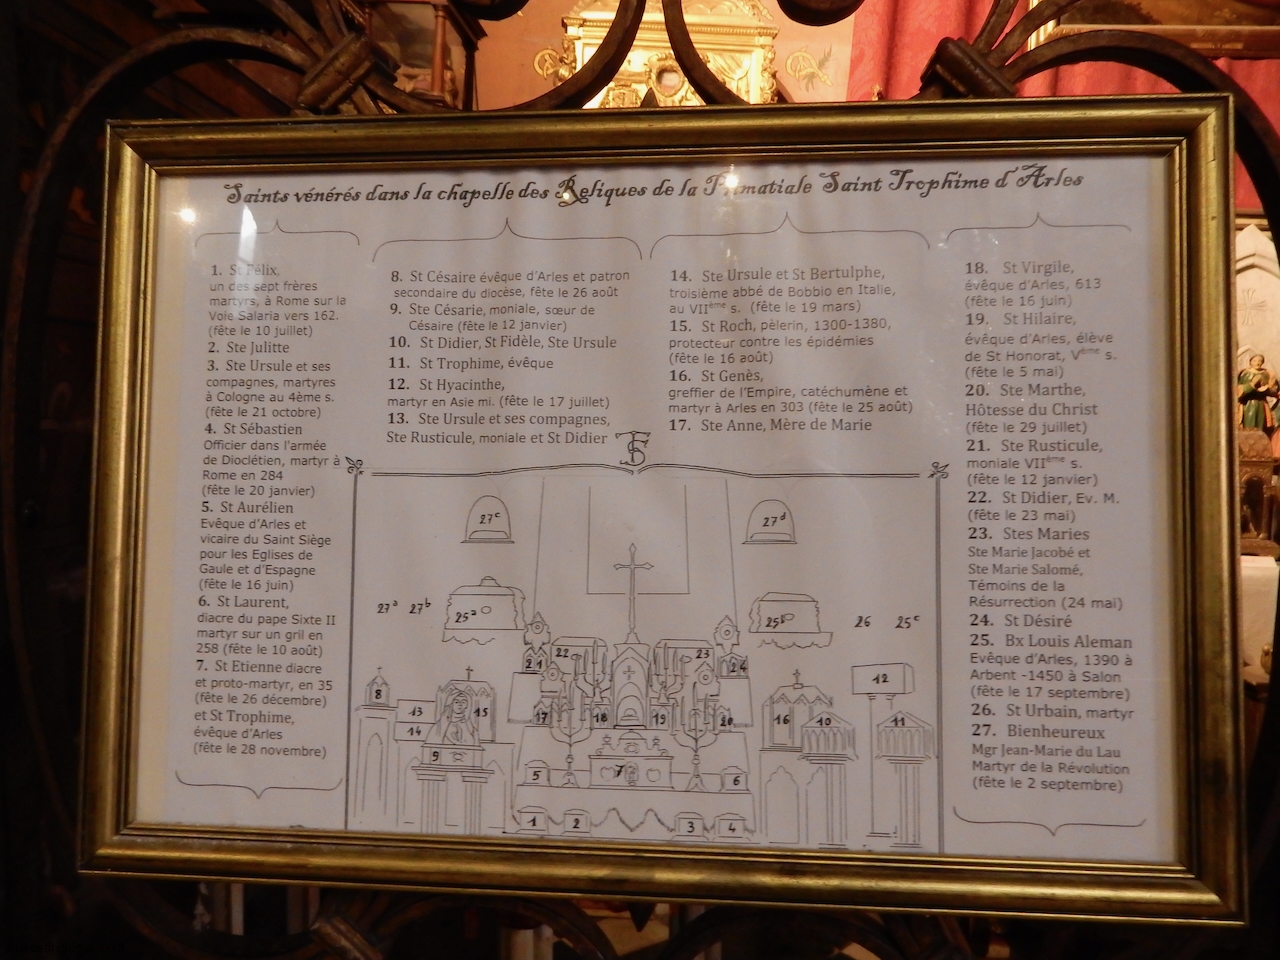 Saints vénérés dans la chapelle des Reliques de la Primatiale Saint Trophime d'Arles
1. St Félix,
un des sept frères
martyrs, à Rome sur la
Voie Salaria vers 162.
(fête le 10 juillet)
2. Ste Julitte
3. Ste Ursule et ses
compagnes, martyres
à Cologne au 4ème s.
(fête le 21 octobre)
4. St Sébastien
Officier dans l'armée
de Dioclétien, martyr à
Rome en 284
(fête le 20 janvier)
5. St Aurélien
Evêque d'Arles et
vicaire du Saint Siège
pour les Eglises de
Gaule et d'Espagne
(fête le 16 juin)
6. St Laurent,
diacre du pape Sixte II
martyr sur un gril en
258 (fête le 10 août)
7. St Etienne diacre
et proto-martyr, en 35
(fête le 26 décembre)
et St Trophime,
évêque d'Arles
(fête le 28 novembre)
8. St Césaire évêque d'Arles et patron
secondaire du diocèse, fête le 26 août
9. Ste Césarie, moniale, sœur de
Césaire (fête le 12 janvier)
10. St Didier, St Fidèle, Ste Ursule
11. St Trophime, évêque
12. St Hyacinthe,
martyr en Asie mi. (fête le 17 juillet)
13. Ste Ursule et ses compagnes,
Ste Rusticule, moniale et St Didier
14. Ste Ursule et St Bertulphe,
troisième abbé de Bobbio en Italie,
au VIIème s. (fête le 19 mars)
15. St Roch, pèlerin, 1300-1380,
protecteur contre les épidémies
(fête le 16 août)
16. St Genès,
greffier de l'Empire, catéchumène et
martyr à Arles en 303 (fête le 25 août)
17. Ste Anne, Mère de Marie
18. St Virgile,
évêque d'Arles, 613
(fête le 16 juin)
19. St Hilaire,
évêque d'Arles, élève
de St Honorat, Vème s.
(fête le 5 mai)
20. Ste Marthe,
Hôtesse du Christ
(fête le 29 juillet)
21. Ste Rusticule,
moniale VIIème s.
(fête le 12 janvier)
22. St Didier, Ev. M.
(fête le 23 mai)
23. Stes Maries
Ste Marie Jacobé et
Ste Marie Salomé,
Témoins de la
Résurrection (24 mai)
24. St Désiré
25. Bx Louis Aleman
Evêque d'Arles, 1390 à
Arbent -1450 à Salon
(fête le 17 septembre)
26. St Urbain, martyr
27. Bienheureux
Mgr Jean-Marie du Lau
Martyr de la Révolution
(fête le 2 septembre)
27c 27d
27a 27b 25a 25b 26 25c
21 22 23 24
8 13 15 17 18 19 20 16 10 11 12
14
9 5 7 6
1 2 3 4